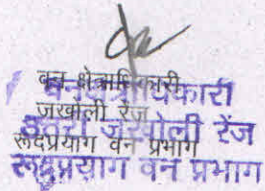 वन क्षेत्राधिकारी
जखोली रेंज
रूद्रप्रयाग वन प्रभाग
वन क्षेत्राधिकारी
उत्तरी जखोली रेंज
रूद्रप्रयाग वन प्रभाग